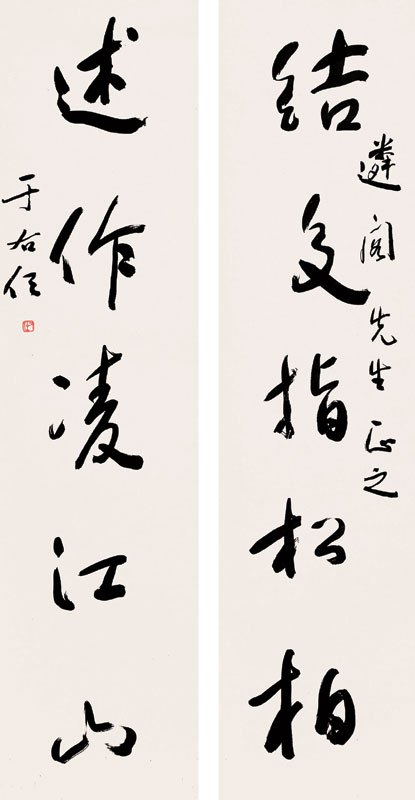 结交指松柏
遴阁先生正之
述作凌江山
于右任